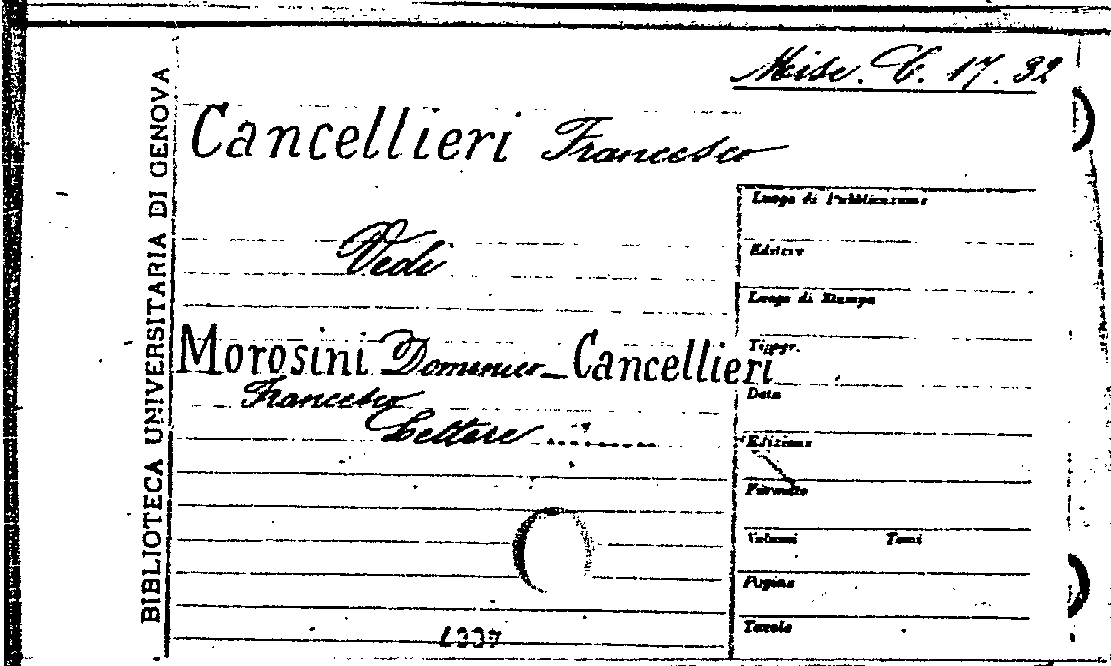 Misc. C. 17. 32
BIBLIOTECA UNIVERSITARIA DI GENOVA
Cancellieri Francesco
Vedi
Morosini Domenico - Cancellieri
Francesco
Lettere ..........
Luogo di Pubblicazione
Editore
Luogo di Stampa
Tipogr.
Data
Edizione
Formato
Volumi Tomi
Pagine
Tavole